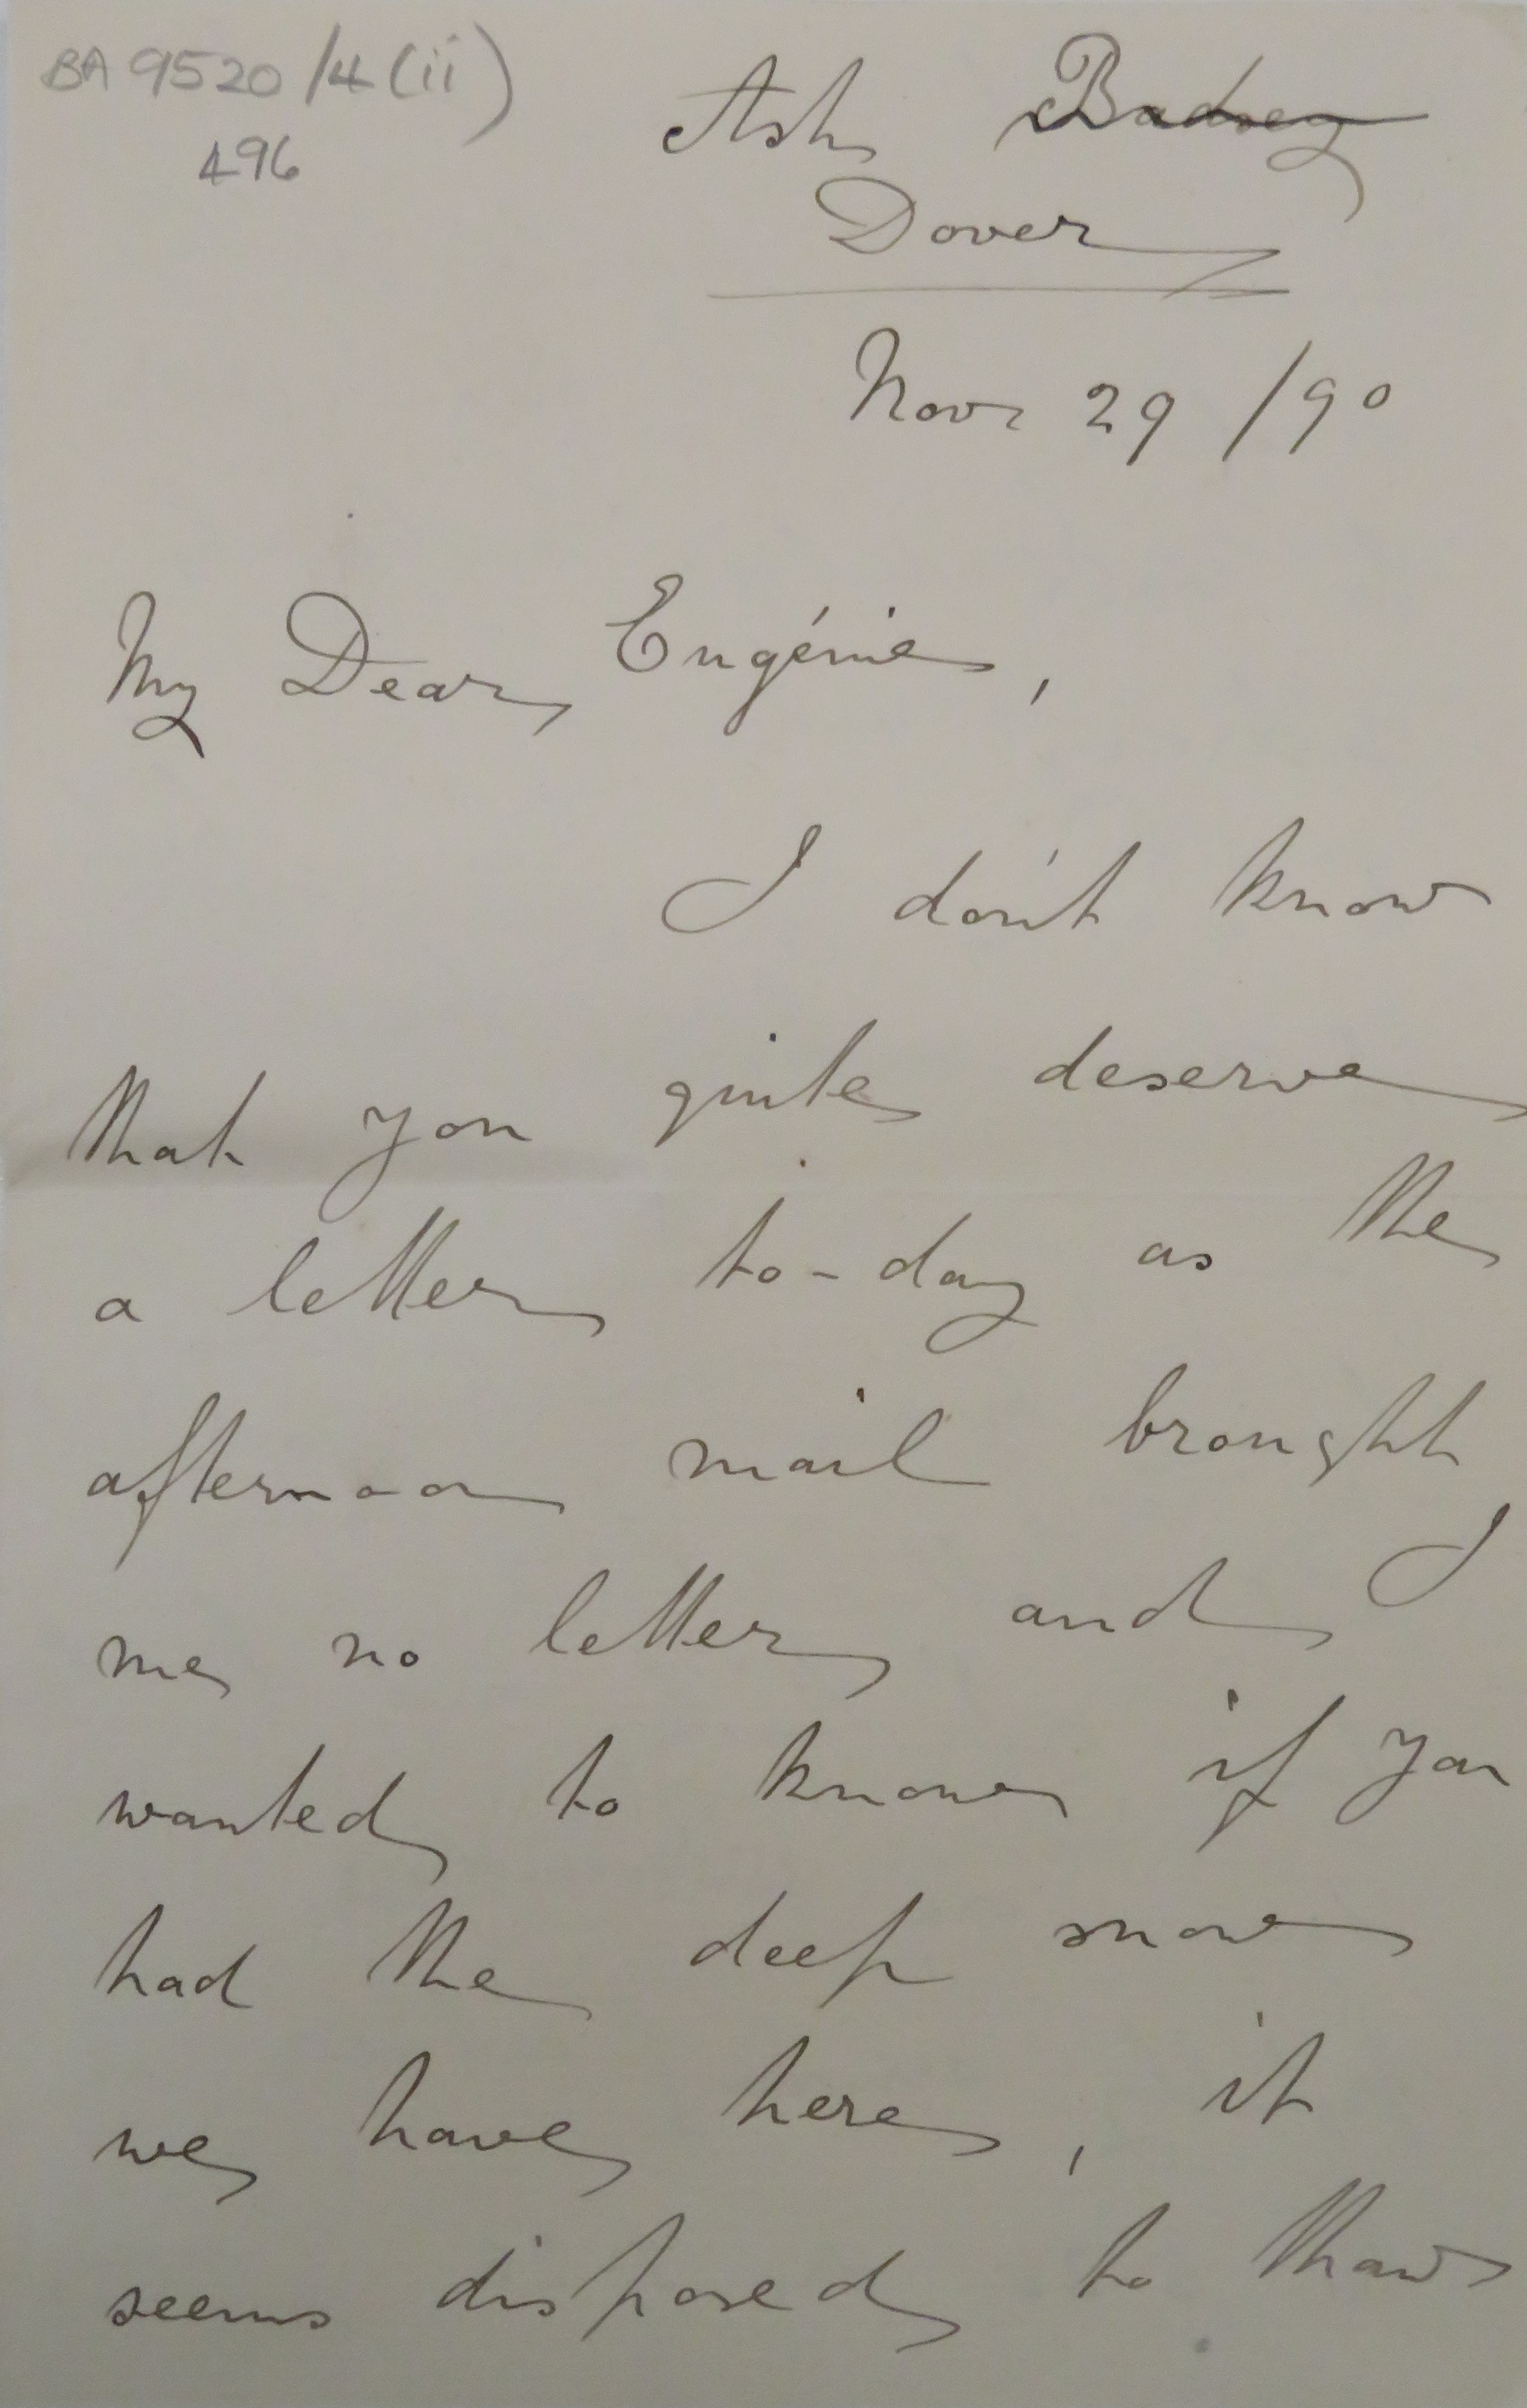 BA 9520/4(ii)
496
Ash, Badsey
Dover
Nov 29 /90
My Dear Eugénie,
I don't know
that you quite deserve
a letter to-day as the
afternoon mail brought
me no letter and I
wanted to know if you
had the deep snow
we have here, it
seems disposed to thaw